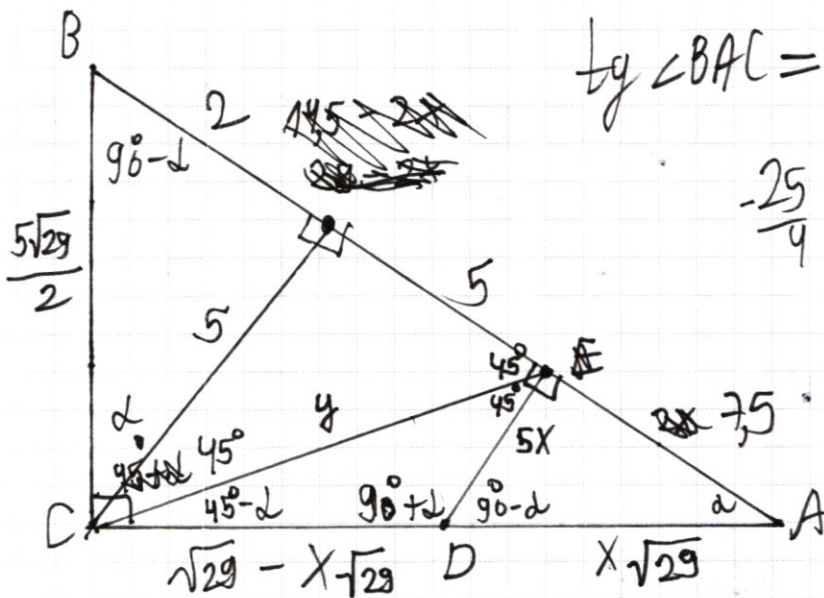 B
tg ∠BAC =
2
90°-α
-25/4
5√29/2
5
5
45°
45°
y
7,5
5x
α
45°
45°-α
90°+α
90°-α
α
C
D
A
√29 - x√29
x√29